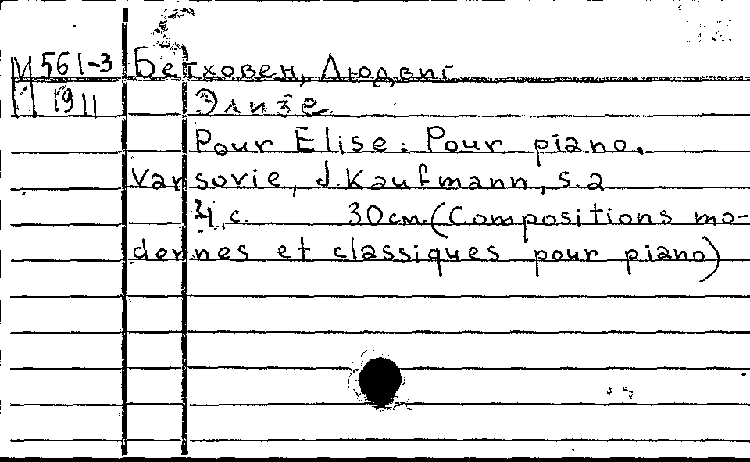 М 561-3 Бетховен, Людвиг
1911 Элизе
Pour Elise. Pour piano.
Varsovie, J. Kaufmann, s.a
4 с. 30 см. (Compositions mo-
dernes et classiques pour piano)